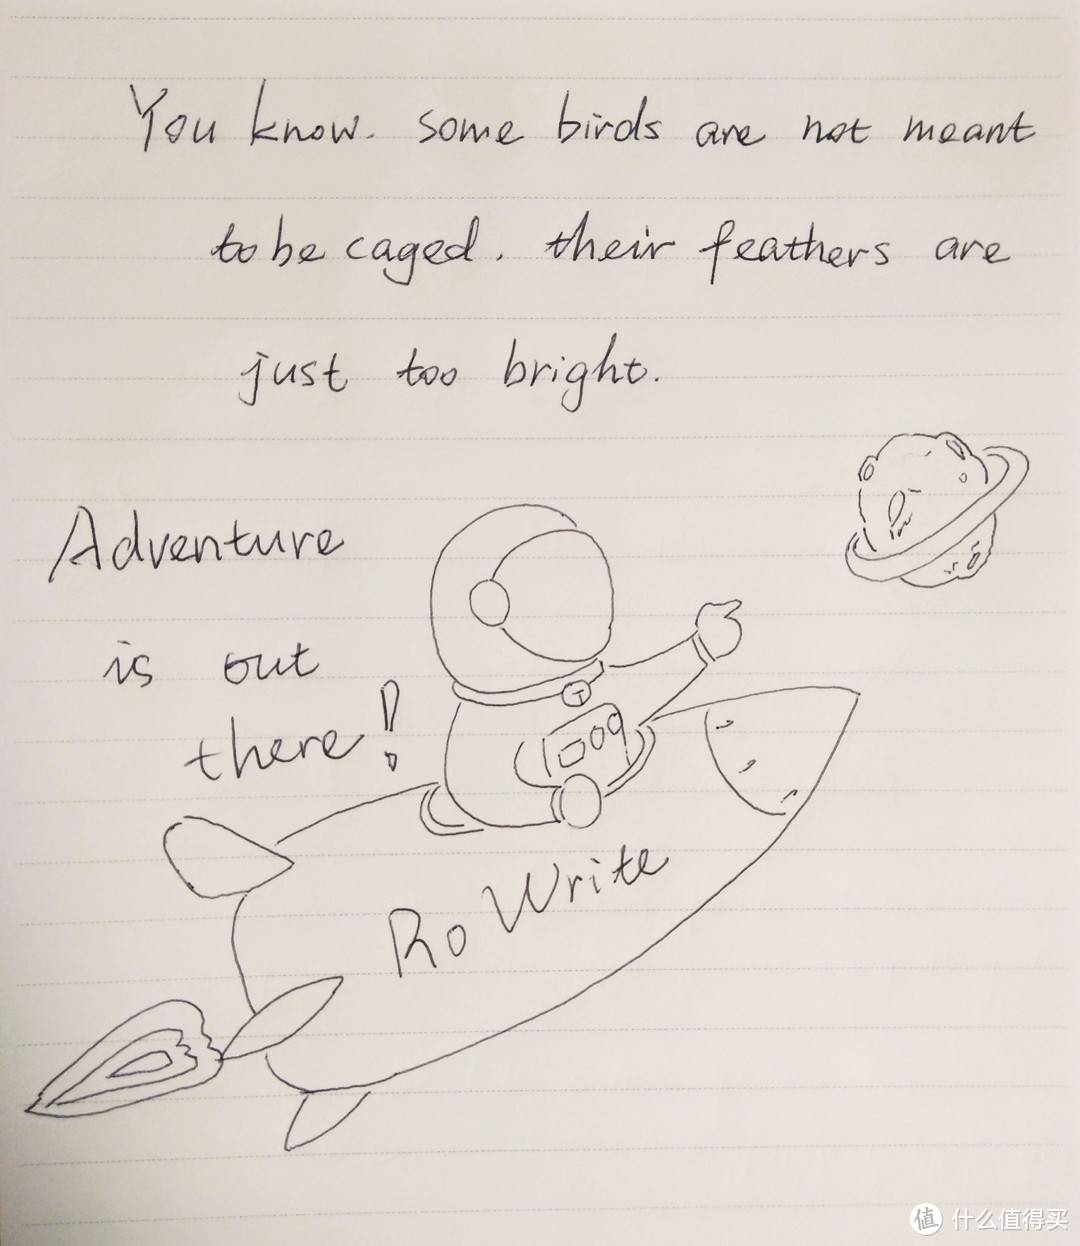 You know. some birds are not meant
to be caged. their feathers are
just too bright.
Adventure
is out
there!
RoWrite
值 什么值得买